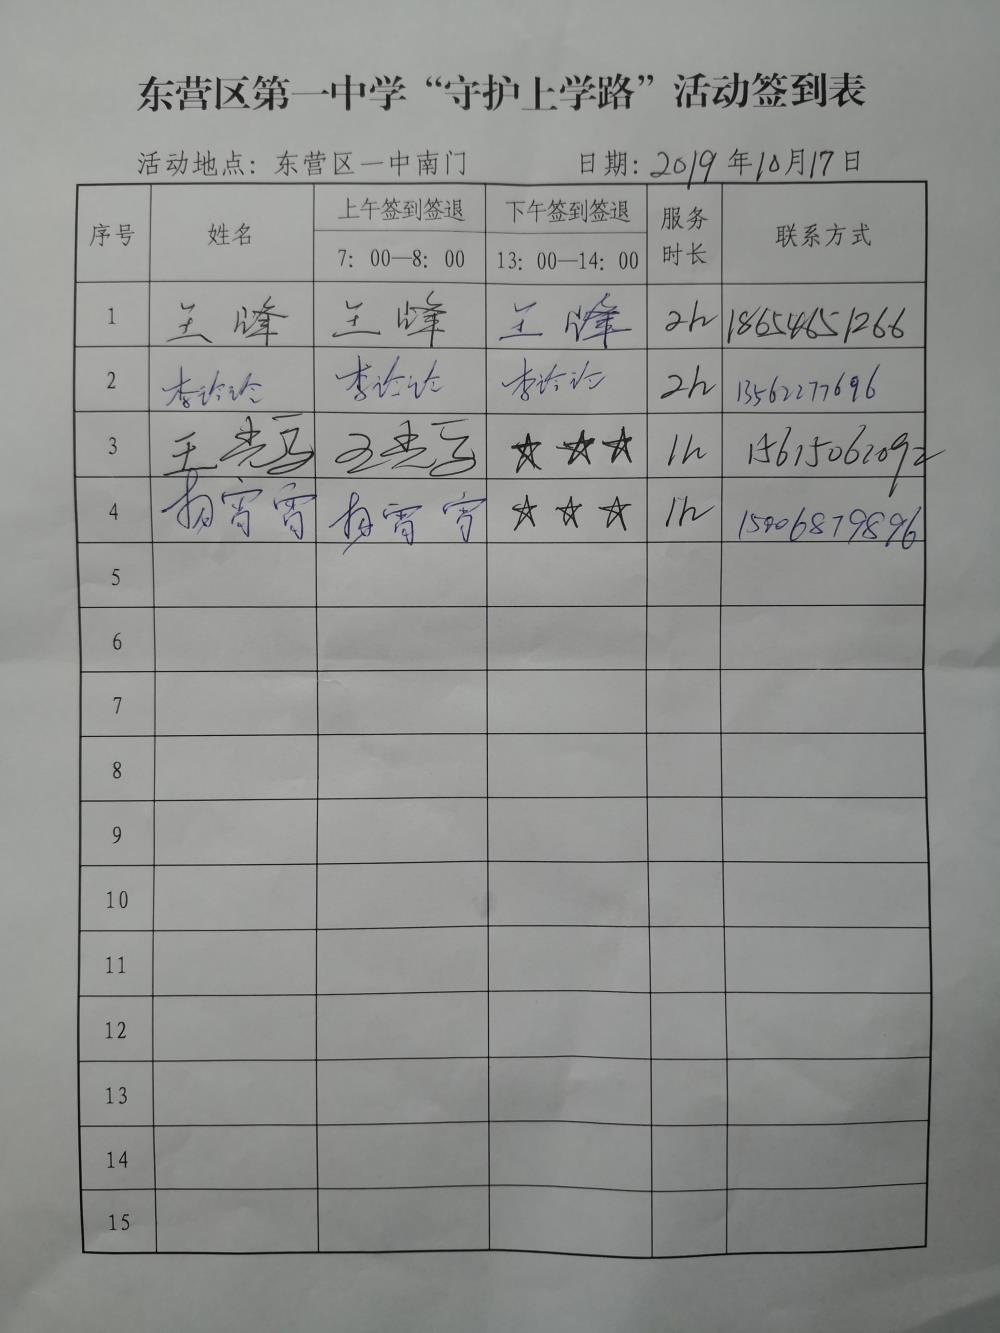 东营区第一中学“守护上学路”活动签到表
活动地点：东营区一中南门 日期：2019年10月17日
序号 姓名 上午签到签退 下午签到签退 服务时长 联系方式
7：00—8：00 13：00—14：00
1 王峰 王峰 王峰 2h 18654651266
2 李论论 李论论 李论论 2h 13562277696
3 ☆☆☆ 1h 15615062092
4 ☆☆☆ 1h 15906879896
5
6
7
8
9
10
11
12
13
14
15